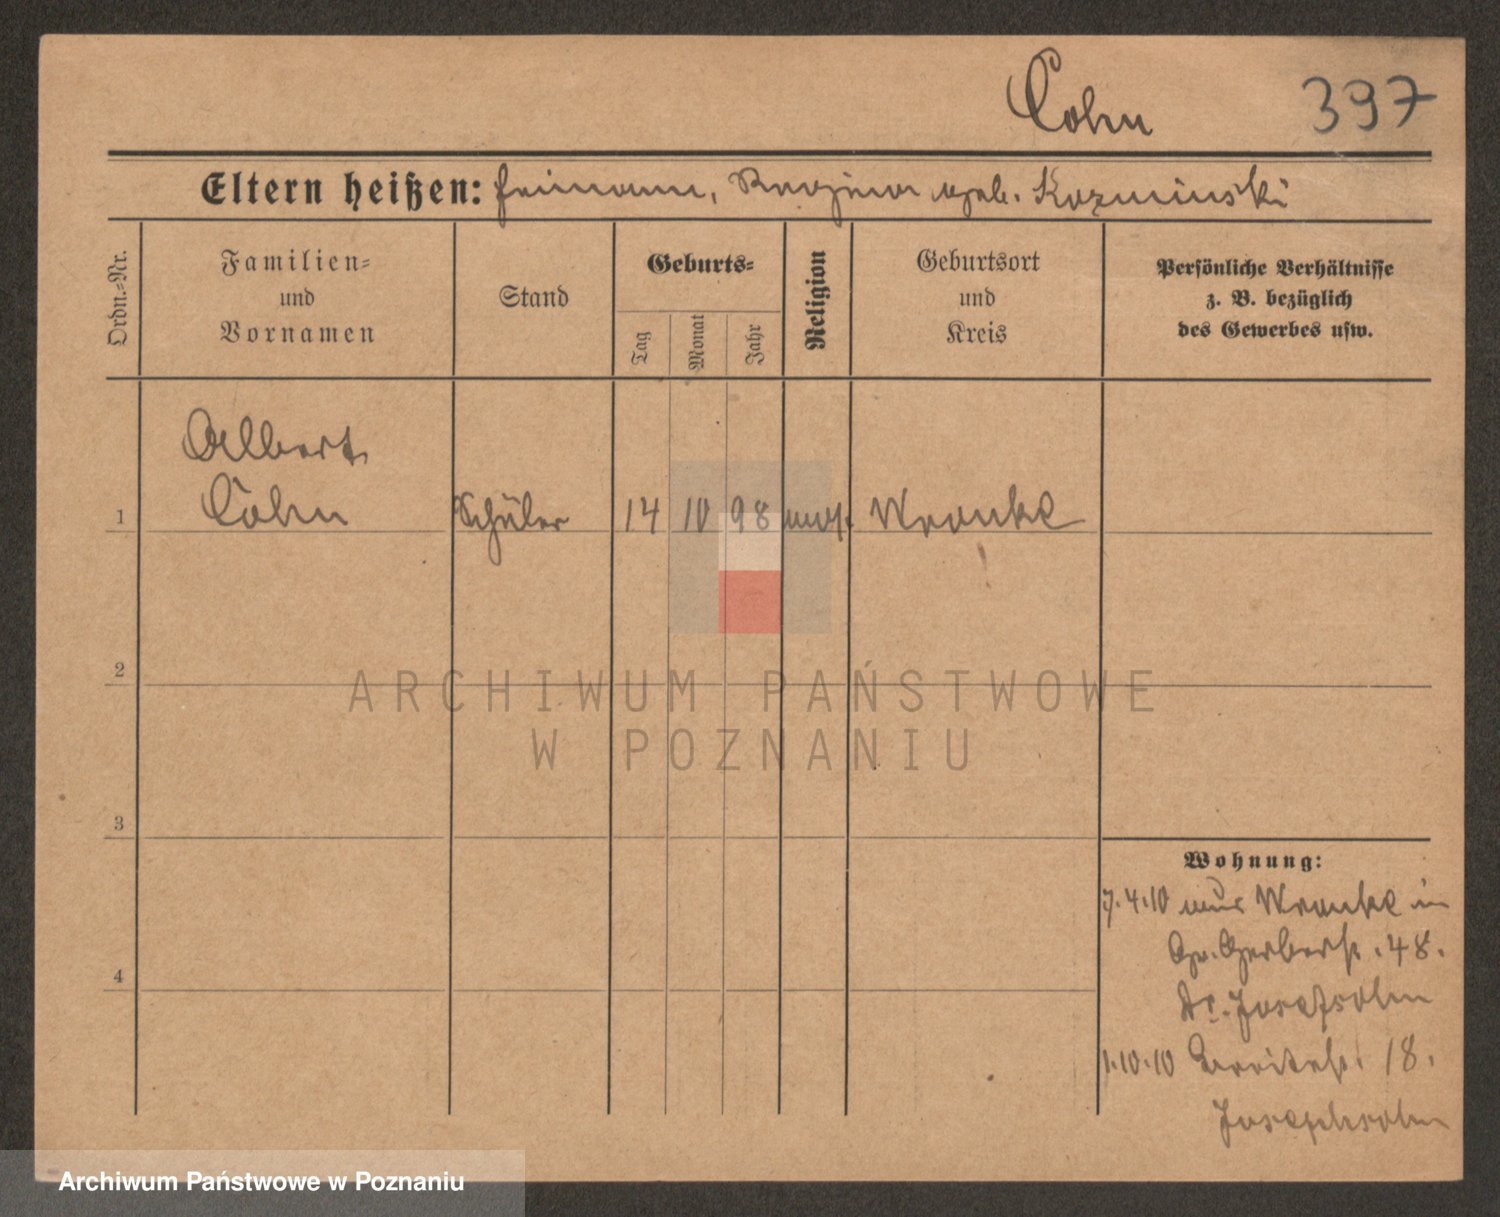 Cohn 397
Eltern heißen: Heimann, Regina geb. Kozminski
Ordn.-Nr.
Familien-
und
Vornamen
Stand
Geburts-
Tag
Monat
Jahr
Religion
Geburtsort
und
Kreis
Persönliche Verhältnisse
z. B. bezüglich
des Gewerbes usw.
Albert
1 Cohn Schüler 14 10 98 mos. Wronke
2
ARCHIWUM PAŃSTWOWE
W POZNANIU
3
Wohnung:
7.4.10 aus Wronke in
Gr. Gerberst. 48.
4
Dr. Josefsohn
1.10.10 Breitestr. 18.
Josephsohn
Archiwum Państwowe w Poznaniu